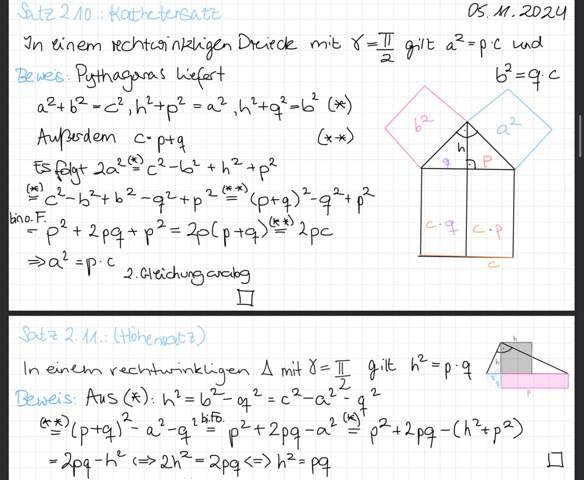 Satz 2.10.: Kathetensatz
05.11.2024
In einem rechtwinkligen Dreieck mit γ = π/2 gilt a² = p·c und
b² = q·c
Beweis: Pythagoras liefert
a² + b² = c², h² + p² = a², h² + q² = b² (*)
Außerdem c = p+q (**)
Es folgt 2a² (*)= c² - b² + h² + p²
(*)= c² - b² + b² - q² + p² (**)= (p+q)² - q² + p²
bino. F.
= p² + 2pq + p² = 2p(p+q) (**)= 2pc
⇒ a² = p·c
2. Gleichung analog
□
b²
a²
h
q
p
c·q
c·p
c
Satz 2.11.: (Höhensatz)
In einem rechtwinkligen Δ mit γ = π/2 gilt h² = p·q
Beweis: Aus (*): h² = b² - q² = c² - a² - q²
(**)= (p+q)² - a² - q² bi.Fo.= p² + 2pq - a² (*)= p² + 2pq - (h² + p²)
= 2pq - h² ⟺ 2h² = 2pq ⟺ h² = pq
□
h
h
q
p